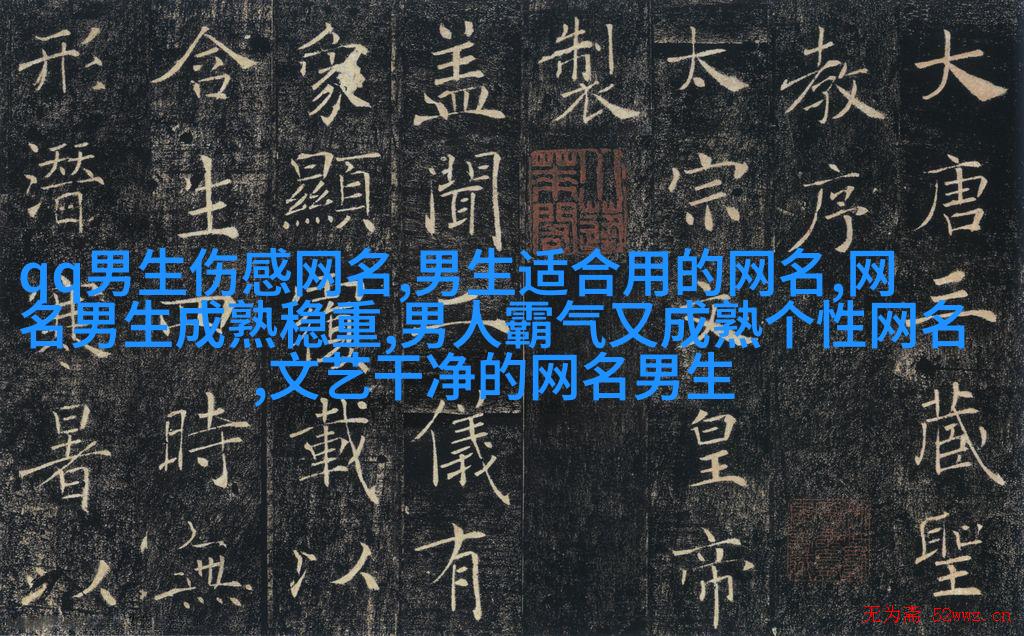 大唐三藏聖
教序
太宗皇帝
製
盖聞二儀有
象顯載以
含生四時無
形潛暑以
qq男生伤感网名,男生适合用的网名,网
名男生成熟稳重,男人霸气又成熟个性网名
,文艺干净的网名男生
无为斋 52wwz.cn